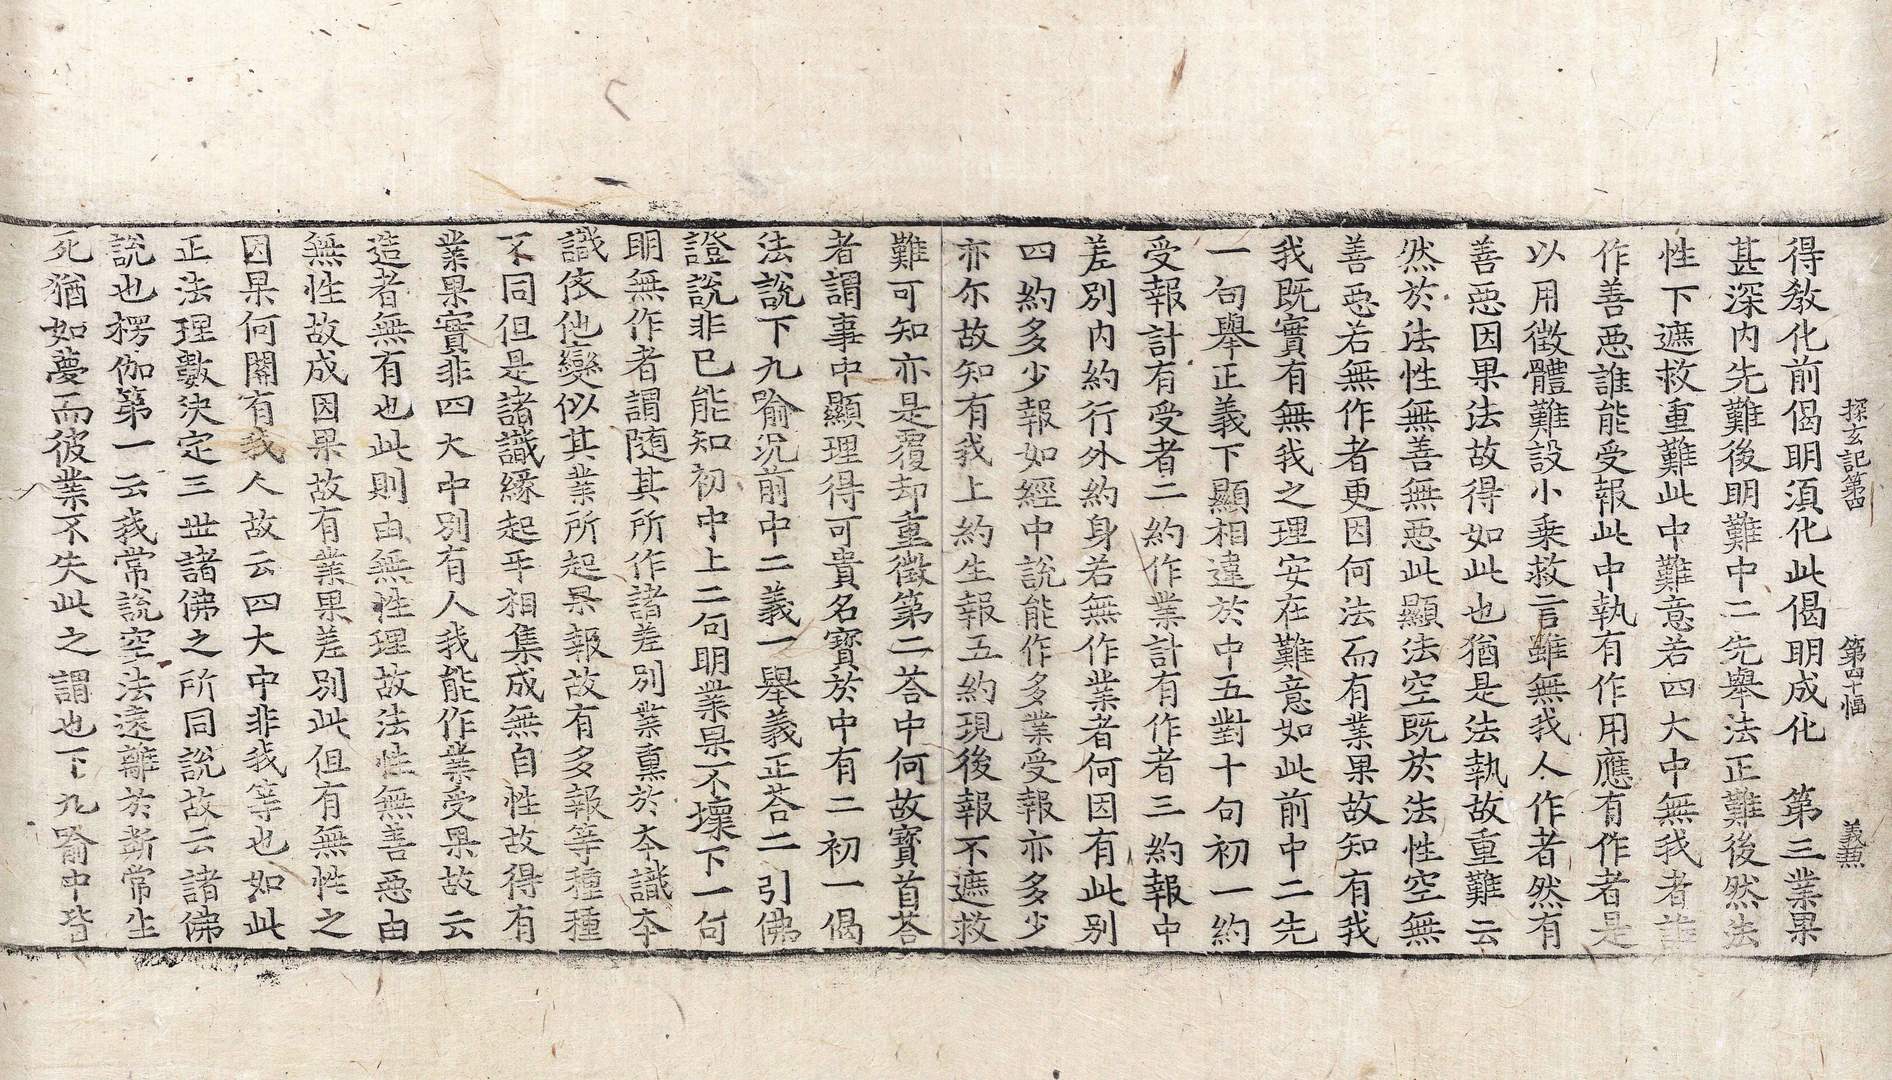 探玄記第四 第四十幅 義照
得敎化前偈明須化此偈明成化 第三業果
甚深內先難後明難中二先舉法正難後然法
性下遮救重難此中難意若四大中無我者誰
作善惡誰能受報此中執有作用應有作者是
以用徵體難設小乘救言雖無我人作者然有
善惡因果法故得如此也猶是法執故重難云
然於法性無善無惡此顯法空旣於法性空無
善惡若無作者更因何法而有業果故知有我
我旣實有無我之理安在難意如此前中二先
一句舉正義下顯相違於中五對十句初一約
受報計有受者二約作業計有作者三約報中
差別內約行外約身若無作業者何因有此別
四約多少報如經中說能作多業受報亦多少
亦尒故知有我上約生報五約現後報不遮救
難可知亦是覆却重徵第二荅中何故寶首荅
者謂事中顯理得可貴名寶於中有二初一偈
法說下九喻況前中二義一舉義正荅二引佛
證說非已能知初中上二句明業果不壞下一句
明無作者謂隨其所作諸差別業熏於夲識夲
識依他變似其業所起果報故有多報等種種
不同但是諸識緣起乎相集成無自性故得有
業果實非四大中別有人我能作業受果故云
造者無有也此則由無性理故法性無善惡由
無性故成因果故有業果差別此但有無性之
因果何關有我人故云四大中非我等也如此
正法理數決定三世諸佛之所同說故云諸佛
說也楞伽第一云我常說空法遠離於斷常生
死猶如夢而彼業不失此之謂也下九喻中皆